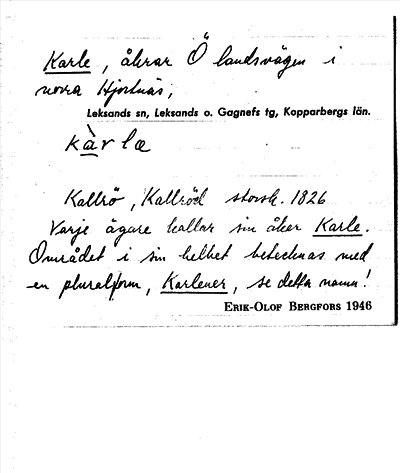 Karle, åkrar Ö landsvägen i
norra Hjortnäs,
Leksands sn, Leksands o. Gagnefs tg, Kopparbergs län.
kàrlæ
Kallrö, Kallröd storsk. 1826
Varje ägare kallar sin åker Karle.
Området i sin helhet betecknas med
en pluralform, Karlener, se detta namn!
Erik-Olof Bergfors 1946